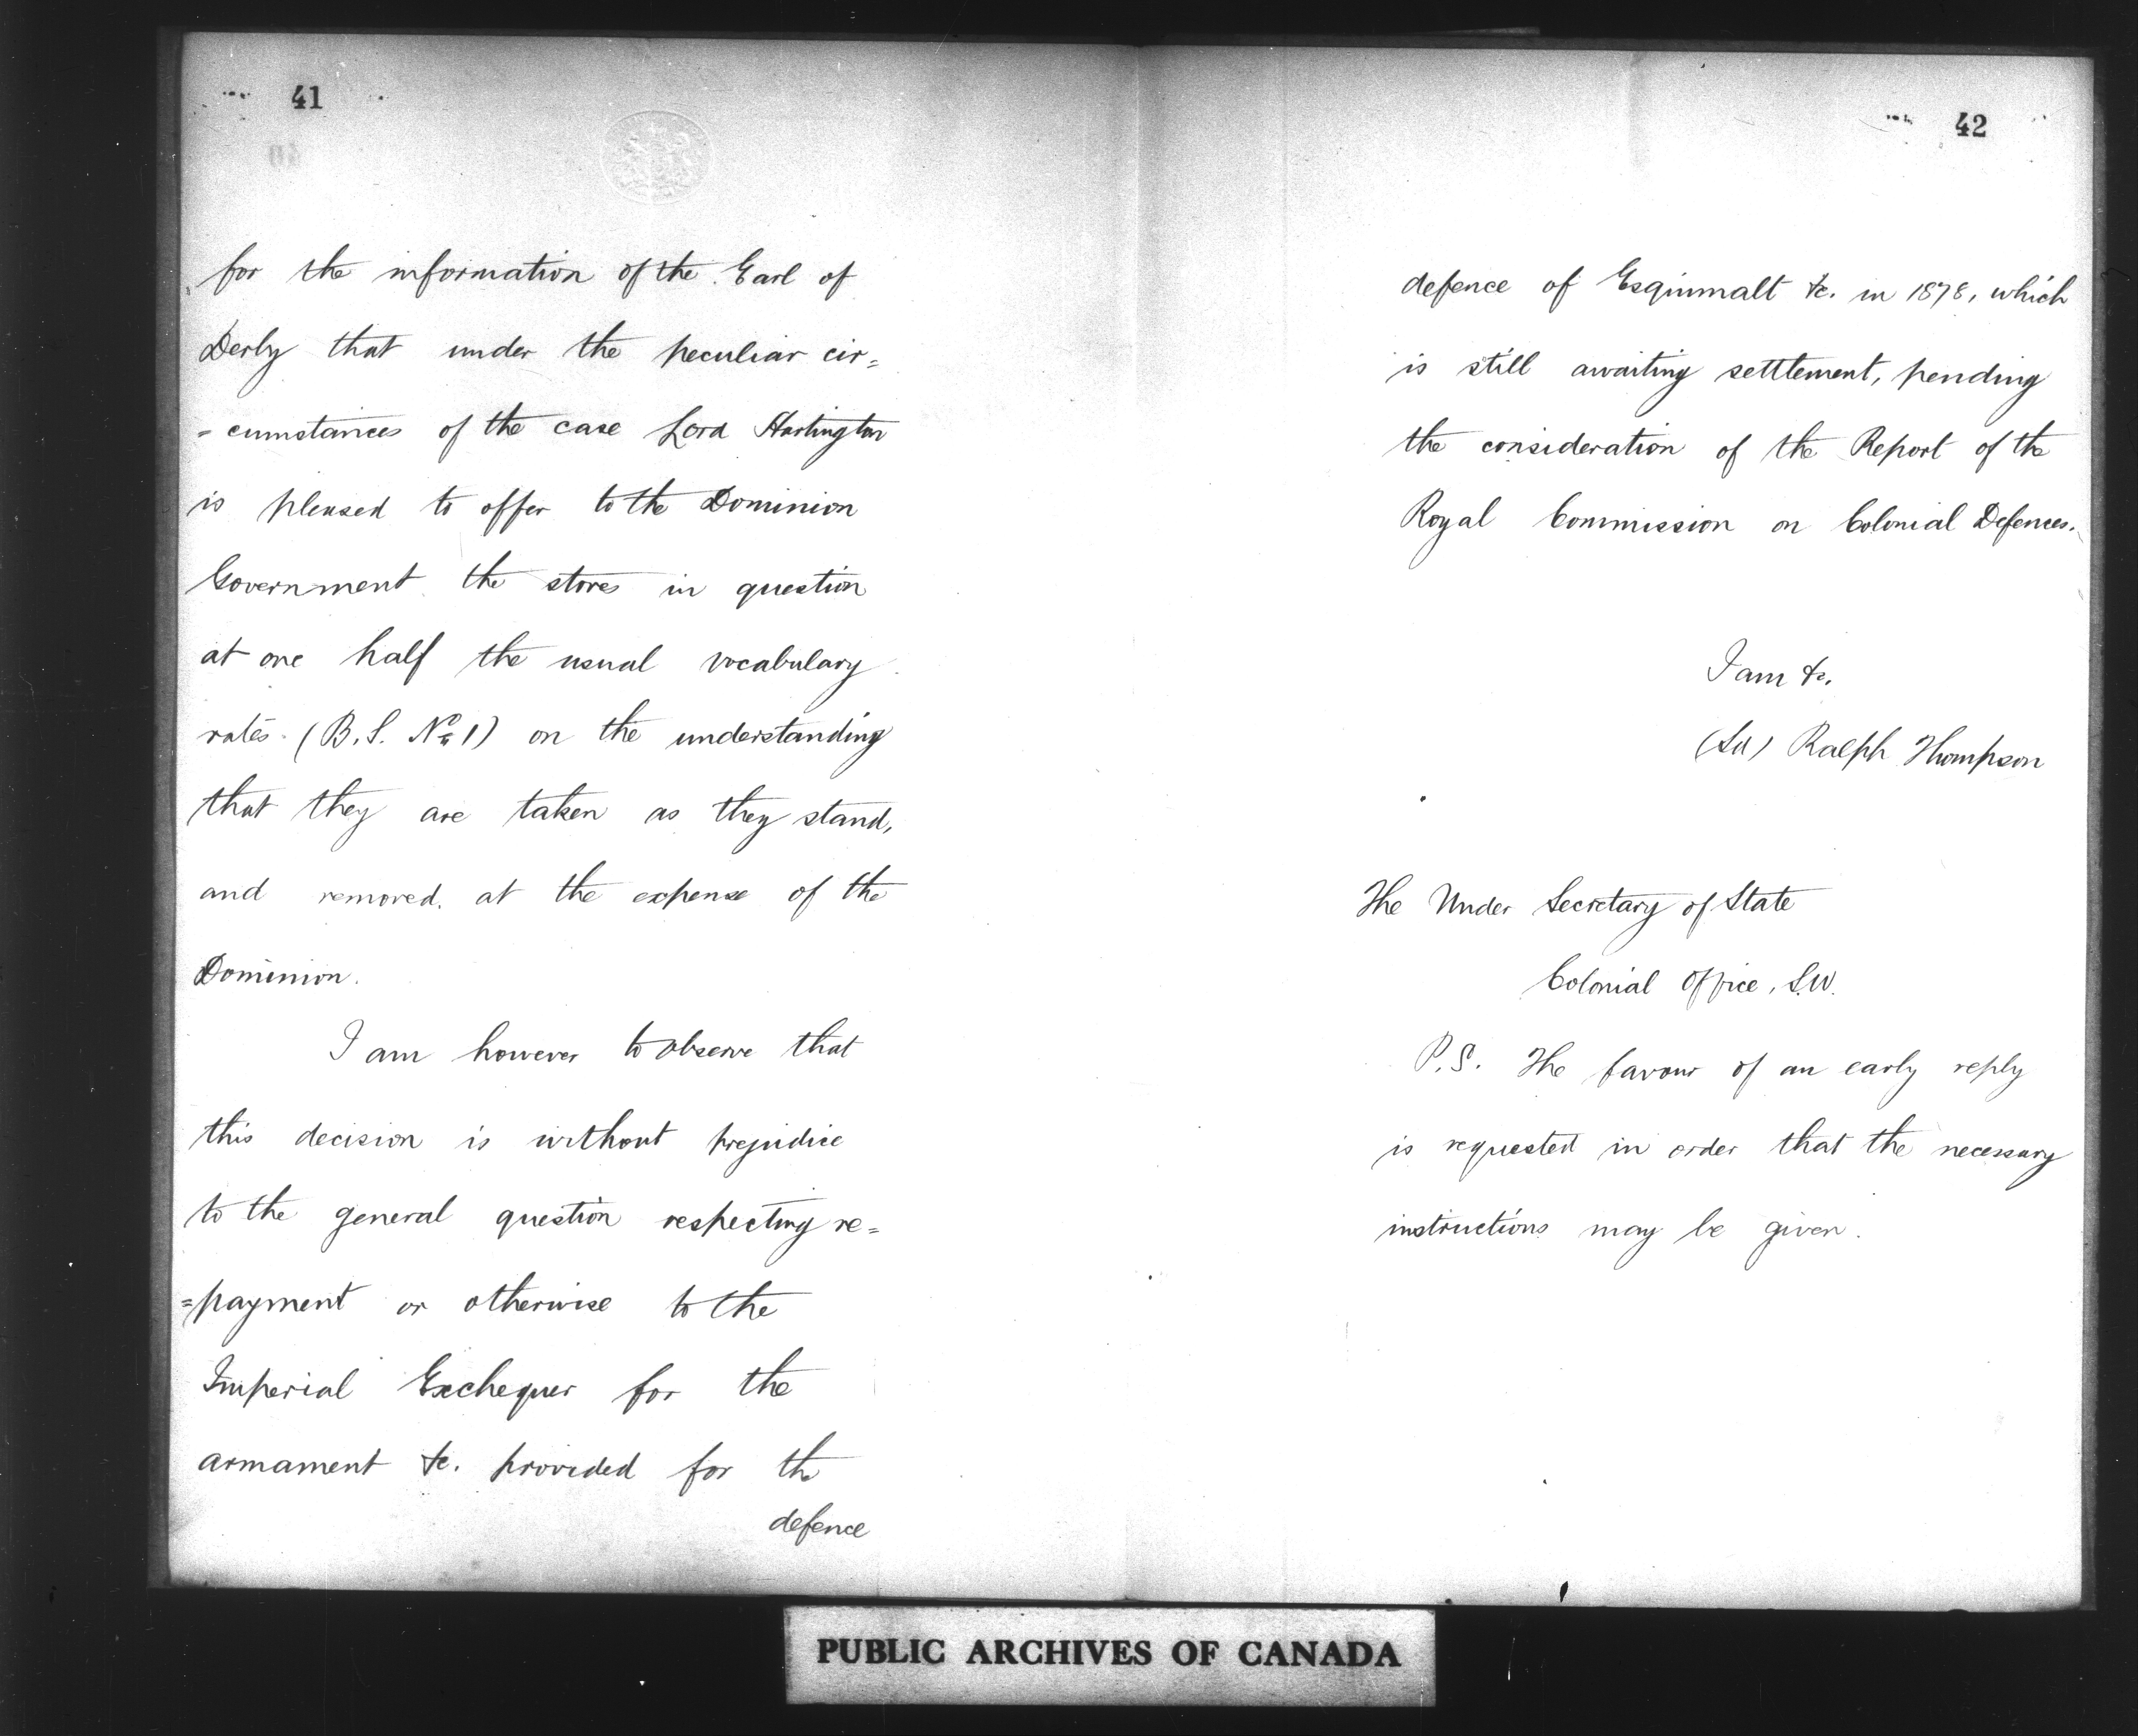 41
for the information of the Earl of
Derby that under the peculiar cir=
=cumstances of the case Lord Hartington
is pleased to offer to the Dominion
Government the stores in question
at one half the usual vocabulary
rates (B.S. No 1) on the understanding
that they are taken as they stand,
and removed at the expense of the
Dominion.
I am however to observe that
this decision is without prejudice
to the general question respecting re=
=payment or otherwise to the
Imperial Exchequer for the
armament &c. provided for the
defence
42
defence of Esquimalt &c. in 1878, which
is still awaiting settlement, pending
the consideration of the Report of the
Royal Commission on Colonial Defences.
I am &c.
(Sd) Ralph Thompson
The Under Secretary of State
Colonial Office, S.W.
P.S. The favour of an early reply
is requested in order that the necessary
instructions may be given.
PUBLIC ARCHIVES OF CANADA